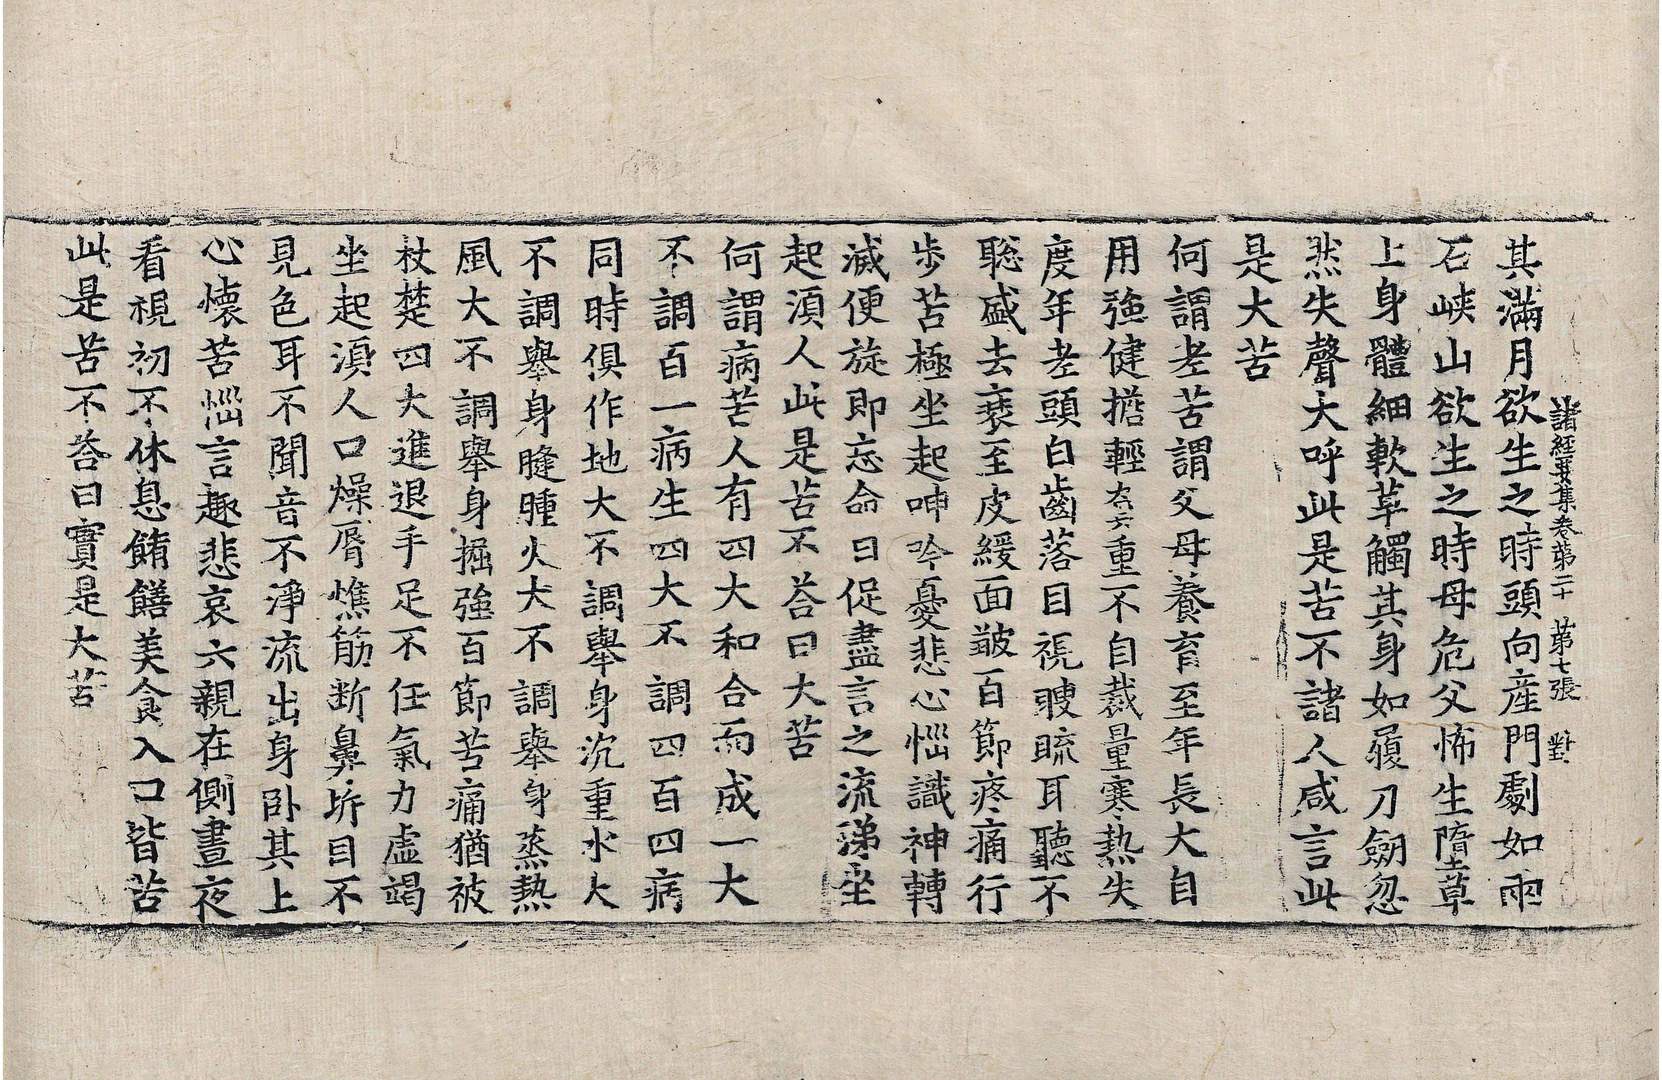 諸經要集卷苐二十 苐七張 對
其滿月欲生之時頭向產門劇如兩
石峽山欲生之時母危父怖生墮草
上身體細軟草觸其身如履刀劒忽
然失聲大呼此是苦不諸人咸言此
是大苦
何謂老苦謂父母養育至年長大自
用強健擔輕負重不自裁量寒熱失
度年老頭白齒落目視䀮䀮耳聽不
聦盛去衰至皮緩面皺百節疼痛行
步苦極坐起呻吟憂悲心惱識神轉
滅便旋即忘命日促盡言之流涕坐
起湏人此是苦不荅曰大苦
何謂病苦人有四大和合而成一大
不調百一病生四大不調四百四病
同時俱作地大不調舉身沉重水大
不調舉身膖腫火大不調舉身蒸熱
風大不調舉身掘強百節苦痛猶被
杖楚四大進退手足不任氣力虛竭
坐起湏人口燥脣燋筋断鼻坼目不
見色耳不聞音不淨流出身卧其上
心懷苦惱言趣悲哀六親在側晝夜
看視初不休息餚饍美食入口皆苦
此是苦不荅曰實是大苦